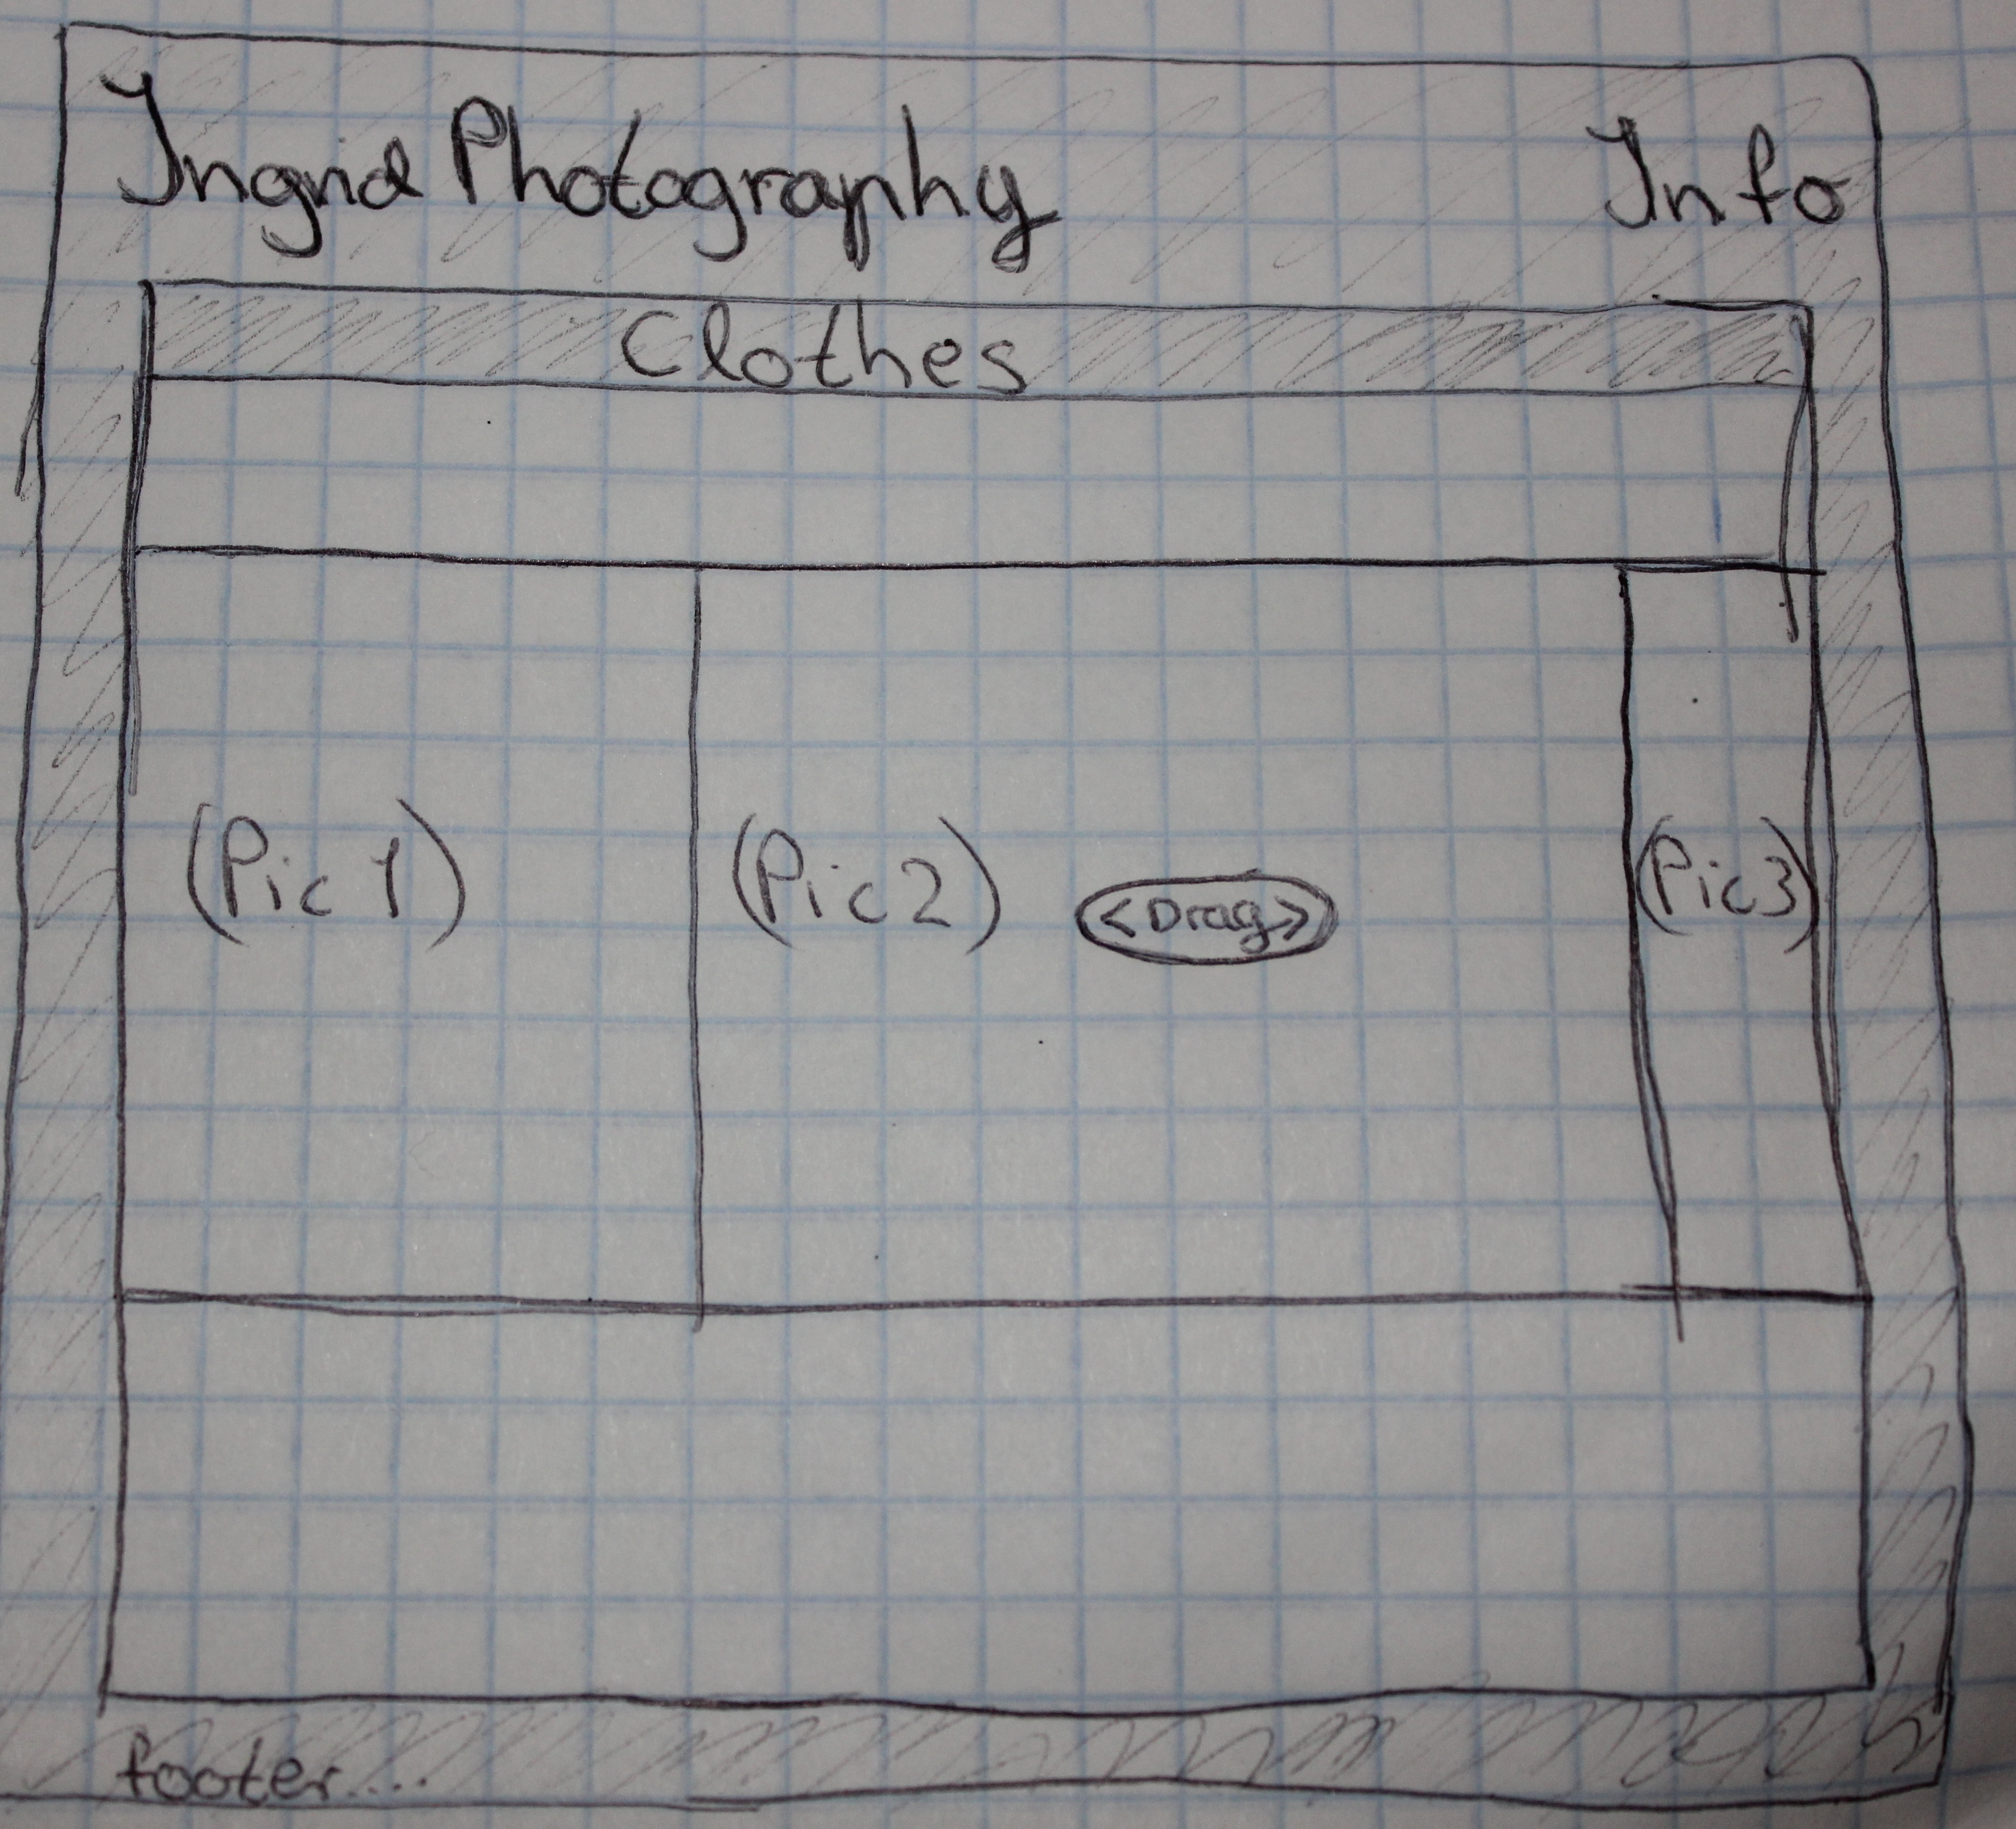 Ingrid Photography Info
Clothes
(Pic 1) (Pic 2) <Drag> (Pic3)
footer....